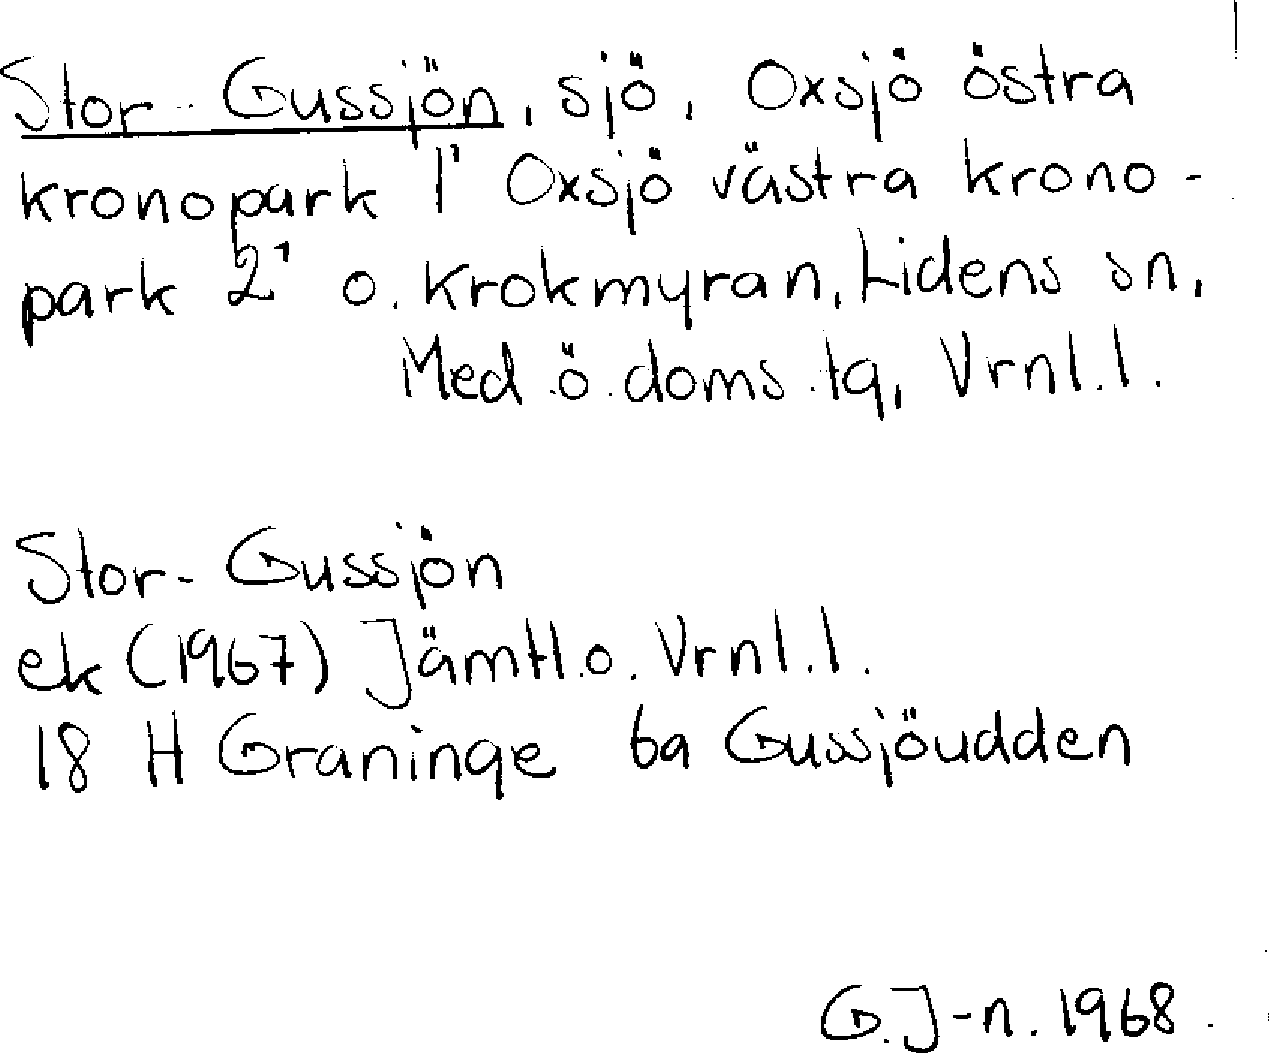 Stor-Gussjön, sjö, Oxsjö östra
kronopark 1¹ Oxsjö västra krono-
park 2¹ o. Krokmyran, Lidens sn,
Med.ö.doms.tg, Vrnl.l.
Stor-Gussjön
ek (1967) Jämtl.o. Vrnl.l.
18 H Graninge 6a Gussjöudden
G.J-n. 1968.